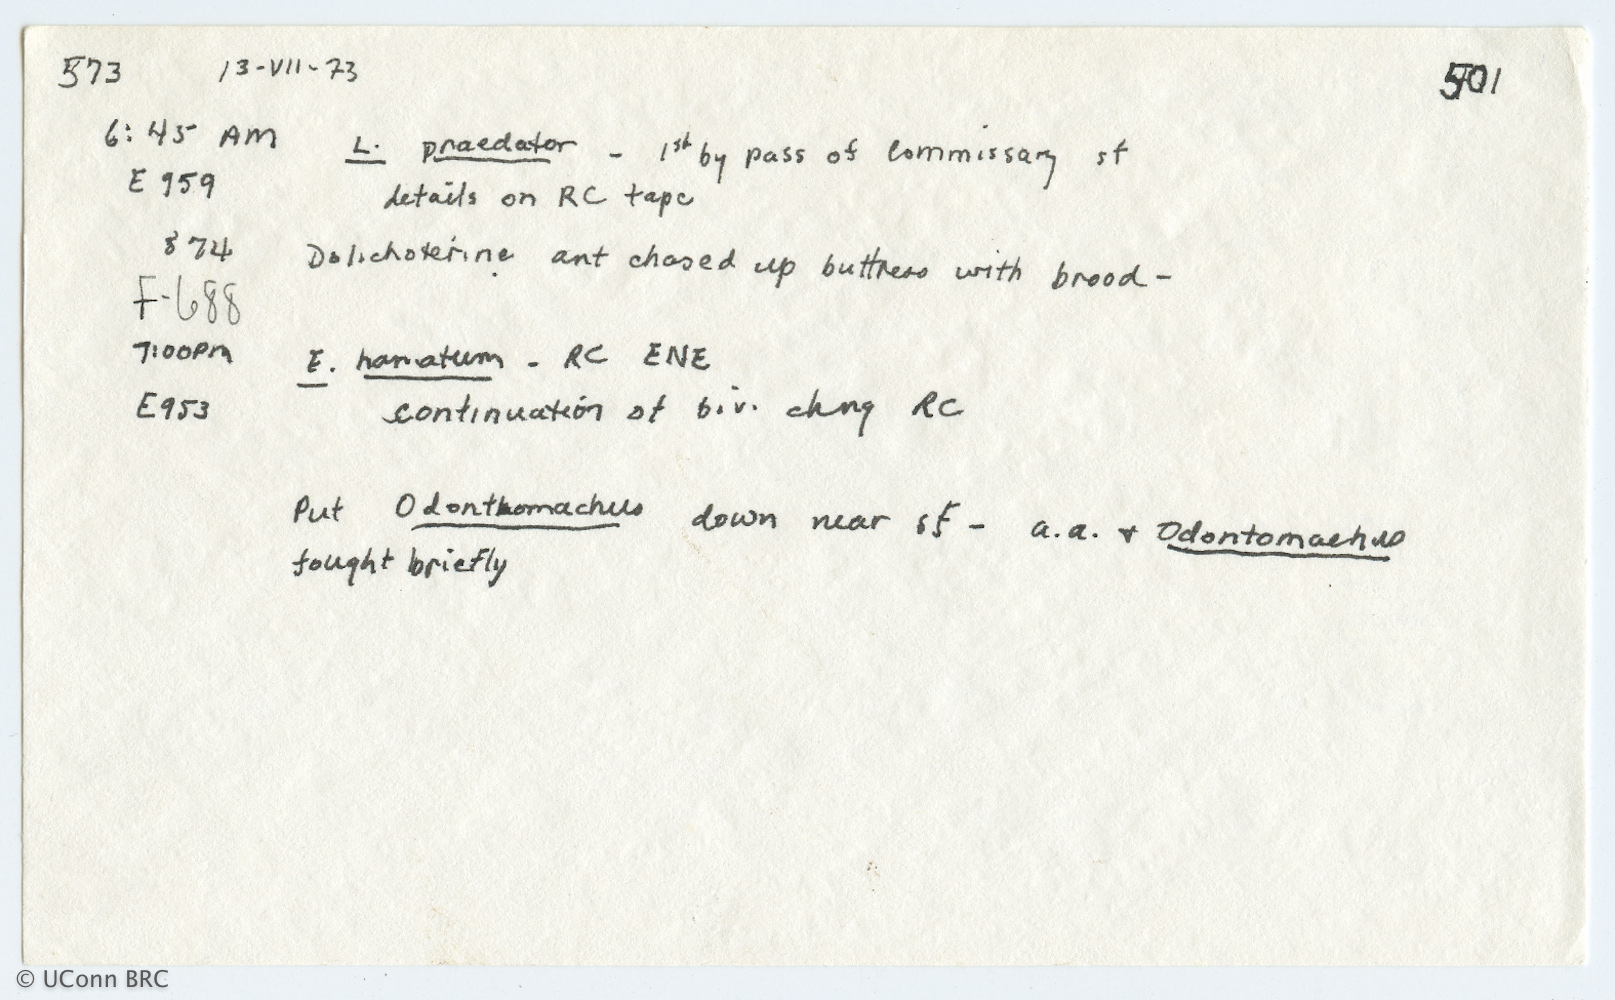 573 13-VII-73 5701
6:45 AM L. praedator - 1st by pass of Commissary st
E 959 details on RC tape
874 Dolichoterine ant chased up buttress with brood-
F-688
7:00PM E. hamatum - RC ENE
E953 continuation of biv. chng RC
Put Odonthomachus down near sf - a.a. + Odontomachus
fought briefly
© UConn BRC